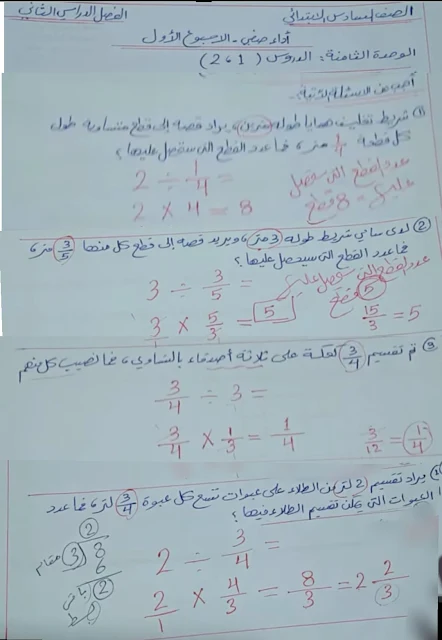 الصف السادس الابتدائي الفصل الدراسي الثاني
أداء صفي - الاسبوع الأول
الوحدة الثامنة: الدروس (1، 2)
أجب عن الاسئلة الآتية:
① شريط تغليف هدايا طوله مترين، يراد قصه إلى قطع متساوية طول
كل قطعة 1/4 متر، فما عدد القطع التي ستحصل عليها؟
2 ÷ 1/4 = عدد القطع التي ستحصل
2 × 4 = 8 عليها = 8 قطع
② لدى سامي شريط طوله 3 متر، ويريد قصه إلى قطع كل منها 3/5 متر،
فما عدد القطع التي سيحصل عليها؟
3 ÷ 3/5 = عدد القطع التي سيحصل عليها
5 قطع
3/1 × 5/3 = 5 15/3 = 5
③ تم تقسيم 3/4 كعكة على ثلاثة أصدقاء بالتساوي، فما نصيب كل منهم
3/4 ÷ 3 =
3/4 × 1/3 = 1/4 3/12 = 1/4
يراد تقسيم 2 لتر من الطلاء على عبوات تسع كل عبوة 3/4 لتر، فما عدد
العبوات التي يمكن تقسيم الطلاء فيها؟
2 ÷ 3/4 =
2/1 × 4/3 = 8/3 = 2 2/3
2
مقام 3 8
6
باقي 2
بسط